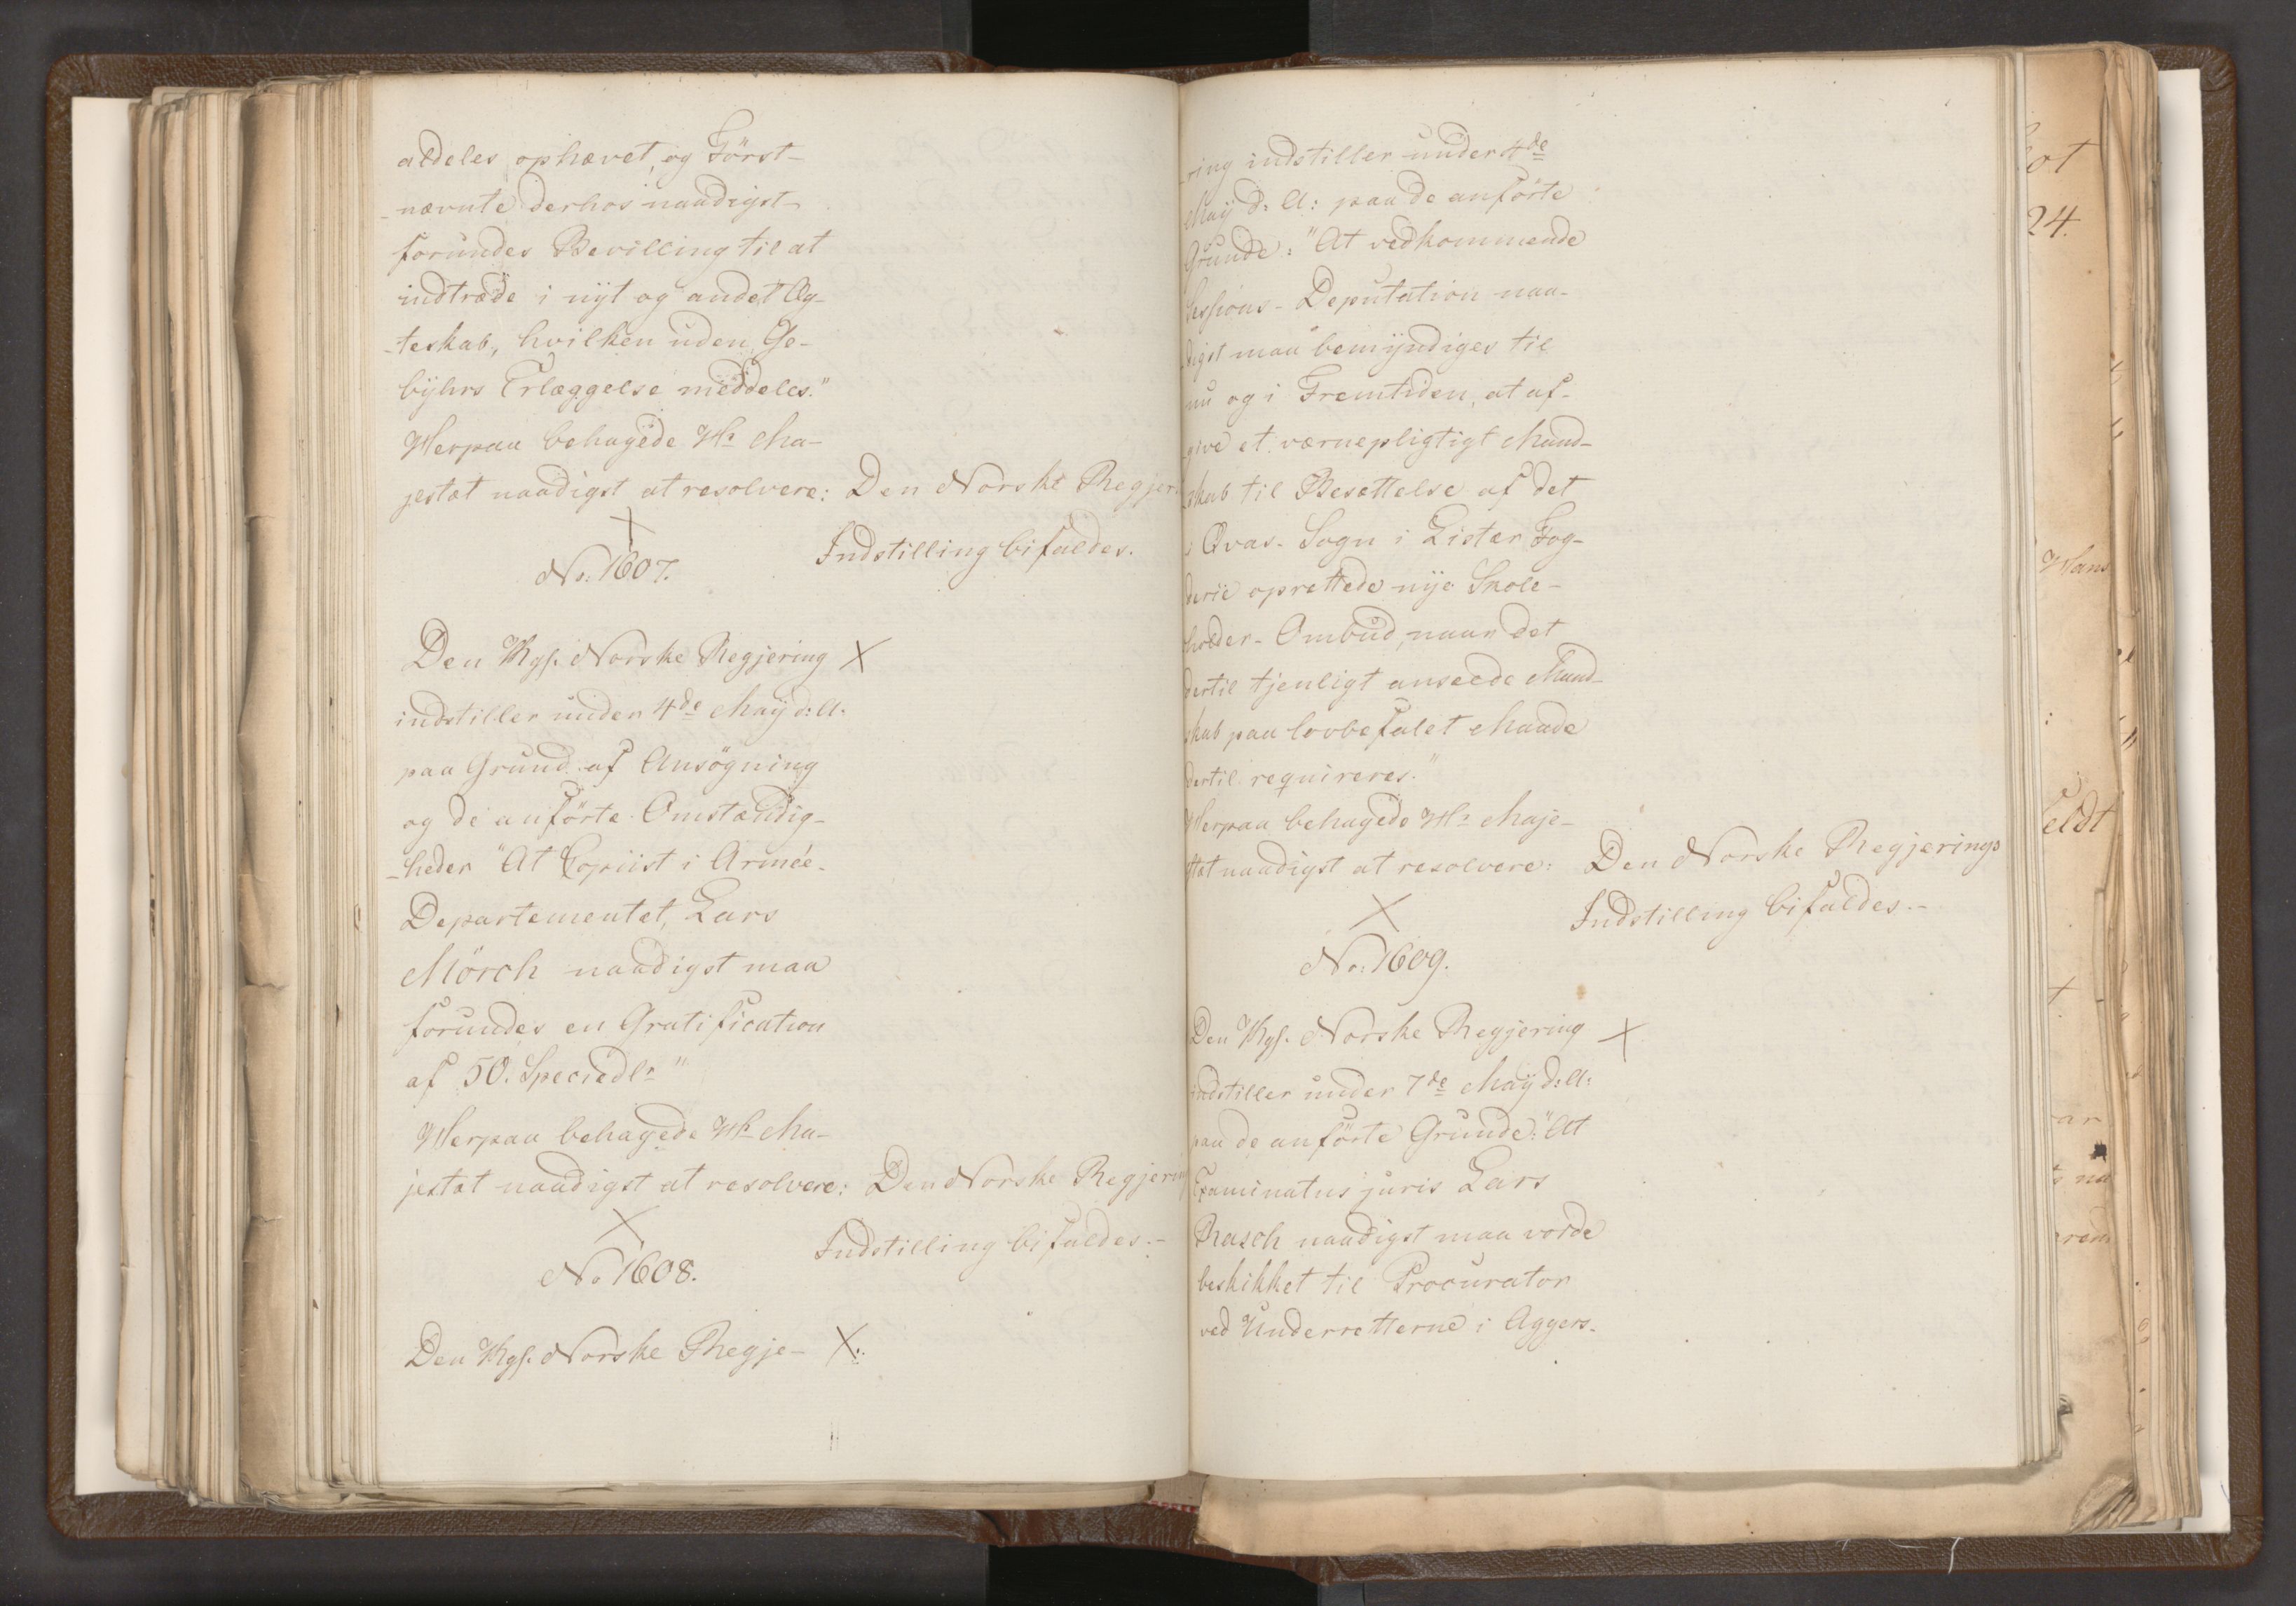 aldeles ophævet, og Först-
-nævnte derhos naadigst
forundes Bevilling til at
indtræde i nÿt og andet Æg-
-teskab, hvilken uden Ge-
bÿhrs Erlæggelse meddeles."
Herpaa behagede Hs Ma-
jestæt naadigst at resolvere: Den Norske Regjer
Indstilling bifaldes.
X
No: 1607.
Den Kgl. Norske Regjering X
indstiller under 4de Maÿ d: A.
paa Grund af Ansögning
og de anförte Omstændig-
-heder "At Copiist i Armée-
Departementet, Lars
Mörch naadigst maa
forundes en Gratification
af 50. Speciedlr"
Herpaa behagede Hs Ma-
jestæt naadigst at resolvere: Den Norske Regjerin
Indstilling bifaldes.-
X
No 1608.
Den Kgl. Norske Regje- X
-ring indstiller under 4de
Maÿ d: A: paa de anförte
Grunde: "At vedkommende
Sessions-Deputation naa-
digst maa bemÿndiges til
nu og i Fremtiden, at af-
give et værnepligtigt Mand-
skab til Besættelse af det
i Qvas-Sogn i Lister Fog-
derie oprettede nÿe Skole-
holder-Ombud, naar det
dertil tjenligt anseede Mand-
skab paa lovbefalet Maade
dertil requireres."
Herpaa behagede Hs Maje-
stæt naadigst at resolvere: Den Norske Regjerings
Indstilling bifaldes.-
X
No: 1609.
Den Kgl. Norske Regjering X
indstiller under 7de Maÿ d: A:
paa de anförte Grunde: "At
Examinatus juris Lars
Rasch naadigst maa vorde
beskikket til Procurator
ved Underretterne i Aggers-
24.
Hans